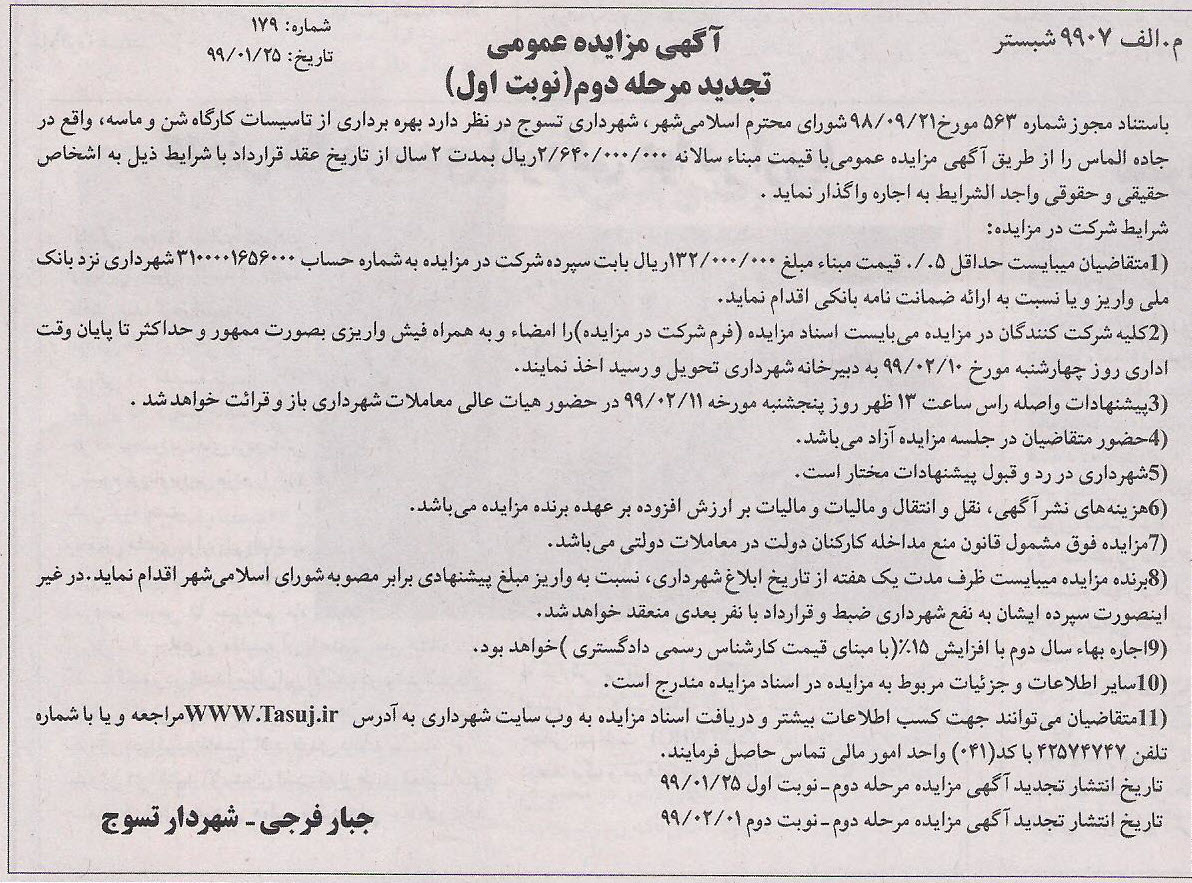 م.الف ۹۹۰۷ شبستر
آگهی مزایده عمومی
تجدید مرحله دوم(نوبت اول)
شماره: ۱۷۹
تاریخ: ۹۹/۰۱/۲۵
باستناد مجوز شماره ۵۶۳ مورخ۹۸/۰۹/۲۱شورای محترم اسلامی‌شهر، شهرداری تسوج در نظر دارد بهره برداری از تاسیسات کارگاه شن و ماسه، واقع در
جاده الماس را از طریق آگهی مزایده عمومی‌با قیمت مبناء سالانه ۲/۶۴۰/۰۰۰/۰۰۰ریال بمدت ۲ سال از تاریخ عقد قرارداد با شرایط ذیل به اشخاص
حقیقی و حقوقی واجد الشرایط به اجاره واگذار نماید .
شرایط شرکت در مزایده:
1)متقاضیان میبایست حداقل ۵ ./. قیمت مبناء مبلغ ۱۳۲/۰۰۰/۰۰۰ریال بابت سپرده شرکت در مزایده به شماره حساب ۳۱۰۰۰۰۱۶۵۶۰۰۰شهرداری نزد بانک
ملی واریز و یا نسبت به ارائه ضمانت نامه بانکی اقدام نماید.
2)کلیه شرکت کنندگان در مزایده می‌بایست اسناد مزایده (فرم شرکت در مزایده)را امضاء و به همراه فیش واریزی بصورت ممهور و حداکثر تا پایان وقت
اداری روز چهارشنبه مورخ ۹۹/۰۲/۱۰ به دبیرخانه شهرداری تحویل و رسید اخذ نمایند.
3)پیشنهادات واصله راس ساعت ۱۳ ظهر روز پنجشنبه مورخه ۹۹/۰۲/۱۱ در حضور هیات عالی معاملات شهرداری باز و قرائت خواهد شد .
4)حضور متقاضیان در جلسه مزایده آزاد می‌باشد.
5)شهرداری در رد و قبول پیشنهادات مختار است.
6)هزینه‌های نشر آگهی، نقل و انتقال و مالیات و مالیات بر ارزش افزوده بر عهده برنده مزایده می‌باشد.
7)مزایده فوق مشمول قانون منع مداخله کارکنان دولت در معاملات دولتی می‌باشد.
8)برنده مزایده میبایست ظرف مدت یک هفته از تاریخ ابلاغ شهرداری، نسبت به واریز مبلغ پیشنهادی برابر مصوبه شورای اسلامی‌شهر اقدام نماید.در غیر
اینصورت سپرده ایشان به نفع شهرداری ضبط و قرارداد با نفر بعدی منعقد خواهد شد.
9)اجاره بهاء سال دوم با افزایش ۱۵٪(با مبنای قیمت کارشناس رسمی دادگستری )خواهد بود.
10)سایر اطلاعات و جزئیات مربوط به مزایده در اسناد مزایده مندرج است.
11)متقاضیان می‌توانند جهت کسب اطلاعات بیشتر و دریافت اسناد مزایده به وب سایت شهرداری به آدرس WWW.Tasuj.irمراجعه و یا با شماره
تلفن ۴۲۵۷۴۷۴۷ با کد(۰۴۱) واحد امور مالی تماس حاصل فرمایند.
تاریخ انتشار تجدید آگهی مزایده مرحله دوم ـ نوبت اول ۹۹/۰۱/۲۵
تاریخ انتشار تجدید آگهی مزایده مرحله دوم ـ نوبت دوم ۹۹/۰۲/۰۱
جبار فرجی ـ شهردار تسوج